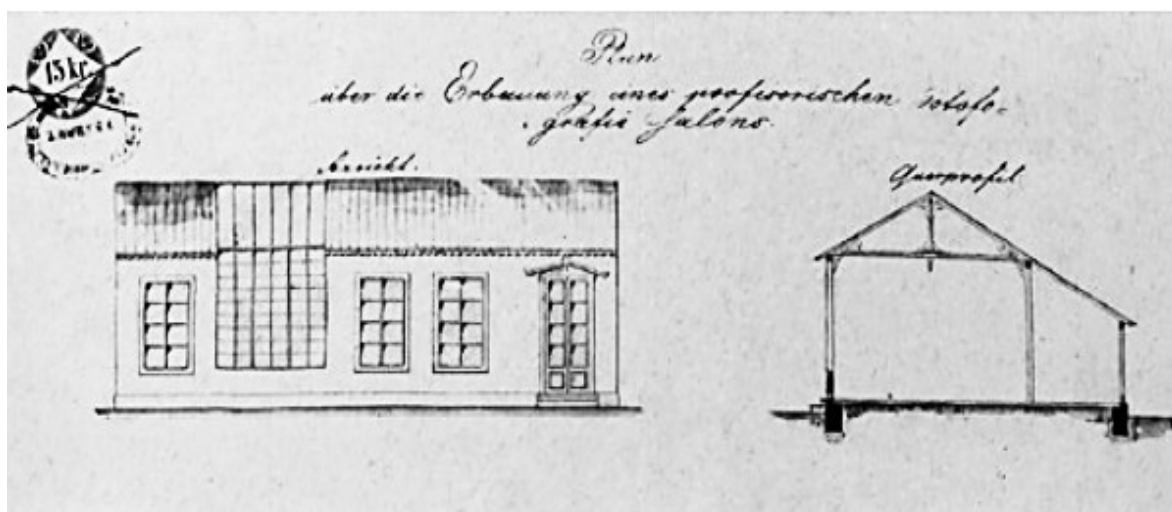 15 kr.
Plan
über die Erbauung eines profisorischen Fotofo-
grafie Salons.
Ansicht.
Querprofil